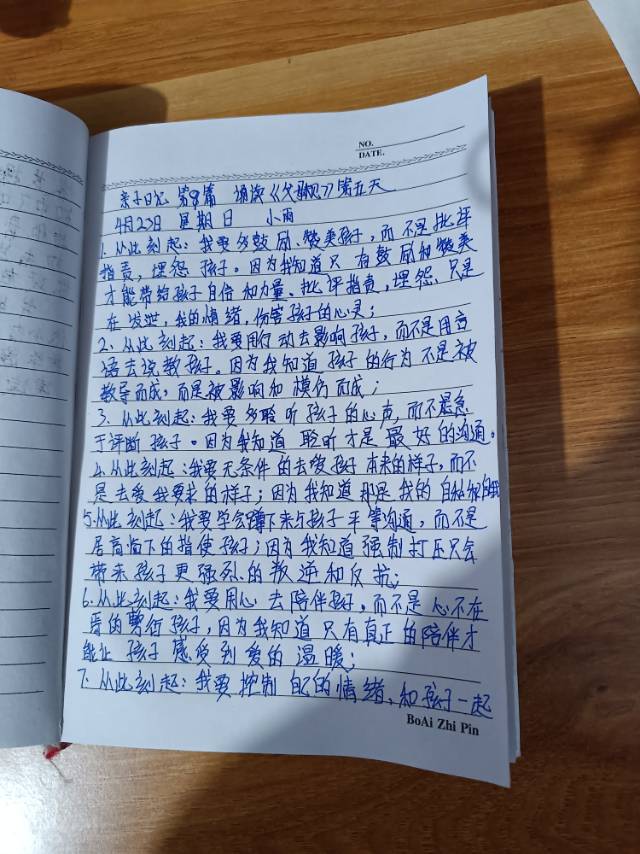 NO.
DATE.
亲子日记 第8篇 诵读《父母规》第五天
4月23日 星期日 小雨
1. 从此刻起：我要多鼓励、赞美孩子，而不是批评
指责，埋怨孩子。因为我知道只有鼓励和赞美
才能带给孩子自信和力量、批评指责，埋怨、只是
在发泄，我的情绪，伤害孩子的心灵；
2、从此刻起：我要用行动去影响孩子，而不是用言
语去说教孩子。因为我知道孩子的行为不是被
教导而成，而是被影响和模仿而成；
3. 从此刻起：我要多聆听孩子的心声，而不是急
于评断孩子。因为我知道聆听才是最好的沟通。
4. 从此刻起：我要无条件的去爱孩子本来的样子，而不
是去爱我要求的样子；因为我知道那是我的自私
5.从此刻起：我要学会蹲下来与孩子平等沟通，而不是
居高临下的指使孩子；因为我知道强制打压只会
带来孩子更强烈的叛逆和反抗；
6. 从此刻起：我要用心去陪伴孩子，而不是心不在
焉的敷衍孩子，因为我知道只有真正的陪伴才
能让孩子感受到爱的温暖；
7. 从此刻起：我要控制自己的情绪，和孩子一起
BoAi Zhi Pin